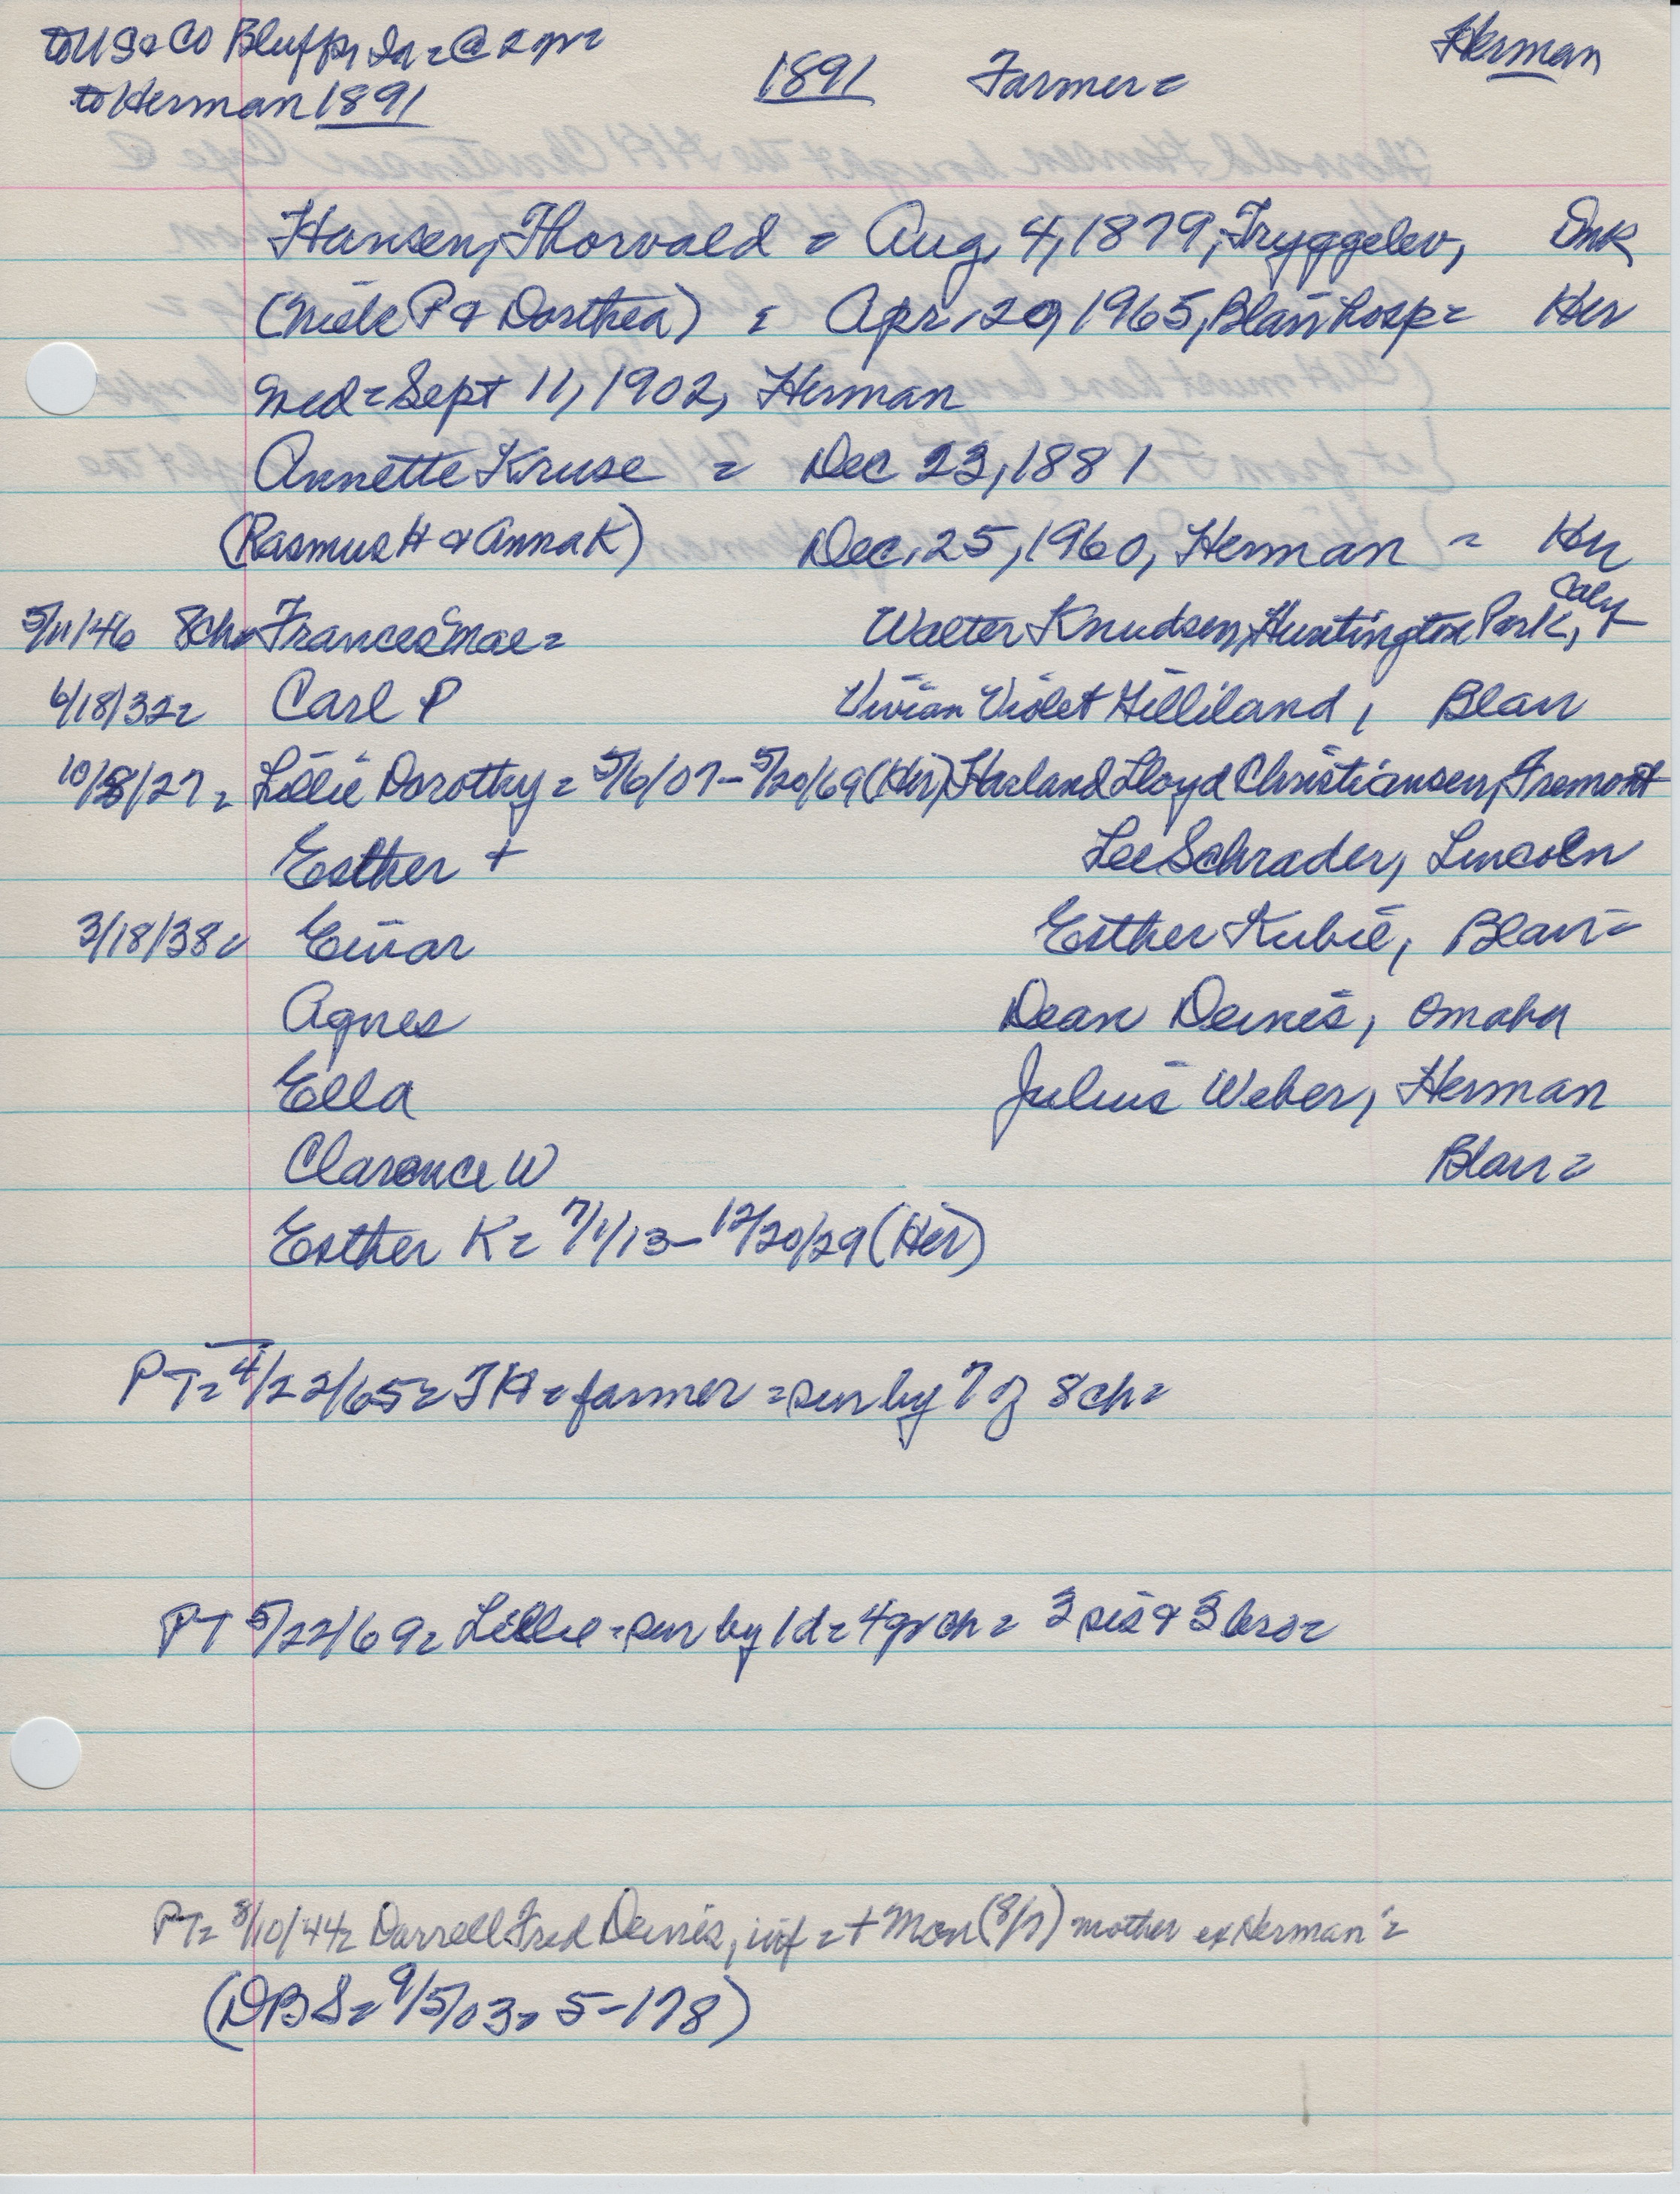 to US = Co Bluffs, Ia = @ 2 yr =
Herman
to Herman 1891
1891 Farmer =
Hansen, Thorvald = Aug, 4, 1879, Tryggelev, Dnk
(Niels P & Dorthea) = Apr. 20, 1965, Blair hosp = Her
med = Sept 11, 1902, Herman
Annette Kruse = Dec 23, 1881
(Rasmus H & Anna K) Dec. 25, 1960, Herman = Her
5/11/46 8ch = Frances Mae = Walter Knudsen, Huntington Park, Calif
6/18/32 = Carl P Vivian Violet Gilliland, Blair
10/8/27 = Lillie Dorothy = 5/6/07 - 5/20/69 (Her) Harland Lloyd Christiansen, Fremont
Esther + Lee Schrader, Lincoln
3/18/38 = Einar Esther Kubie, Blair =
Agnes Dean Dennis, Omaha
Ella Julius Weber, Herman
Clarence W Blair =
Esther K = 7/1/13 - 12/20/29 (Her)
PT = 4/22/65 = TH = farmer = sur by 7 of 8 ch =
PT 5/22/69 = Lillie = sur by 1 d = 4 gr ch = 3 sis & 3 bros =
PT = 8/10/44 = Darrell Fred Dennis, inf = + Mon (8/7) mother ex Herman =
(DBS = 9/5/03 = 5-178)